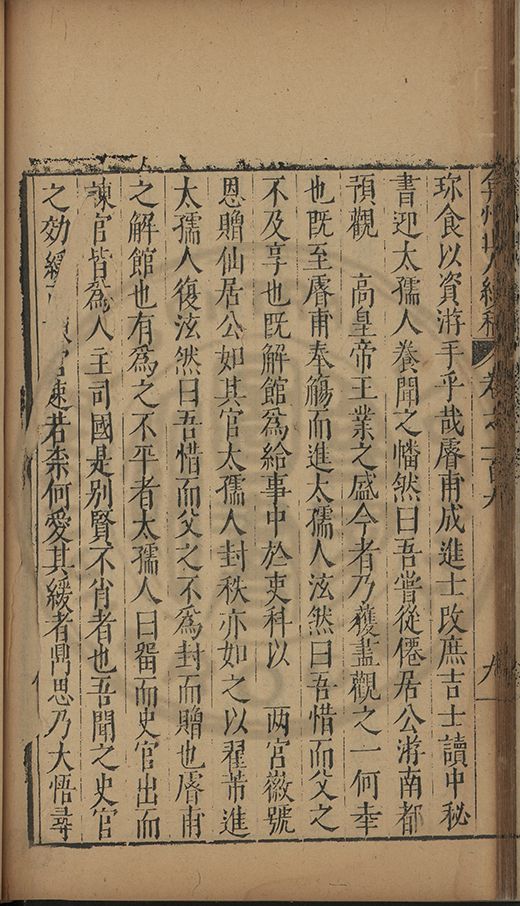 弇州山人續稿 卷之一百九 九
珎食以資游手乎哉㫪甫成進士改庶吉士讀中秘
書迎太孺人養聞之幡然曰吾嘗從僊居公游南都
預觀 高皇帝王業之盛今者乃獲盡觀之一何幸
也既至㫪甫奉觴而進太孺人泫然曰吾惜而父之
不及享也既解館爲給事中於吏科以 两宮徽號
恩贈仙居公如其官太孺人封秩亦如之以翟茀進
太孺人復泫然曰吾惜而父之不爲封而贈也㫪甫
之解館也有爲之不平者太孺人曰畱而史官出而
諫官皆爲人主司國是别賢不肖者也吾聞之史官
之効緩 官速若柰何愛其緩者鼎思乃大悟尋